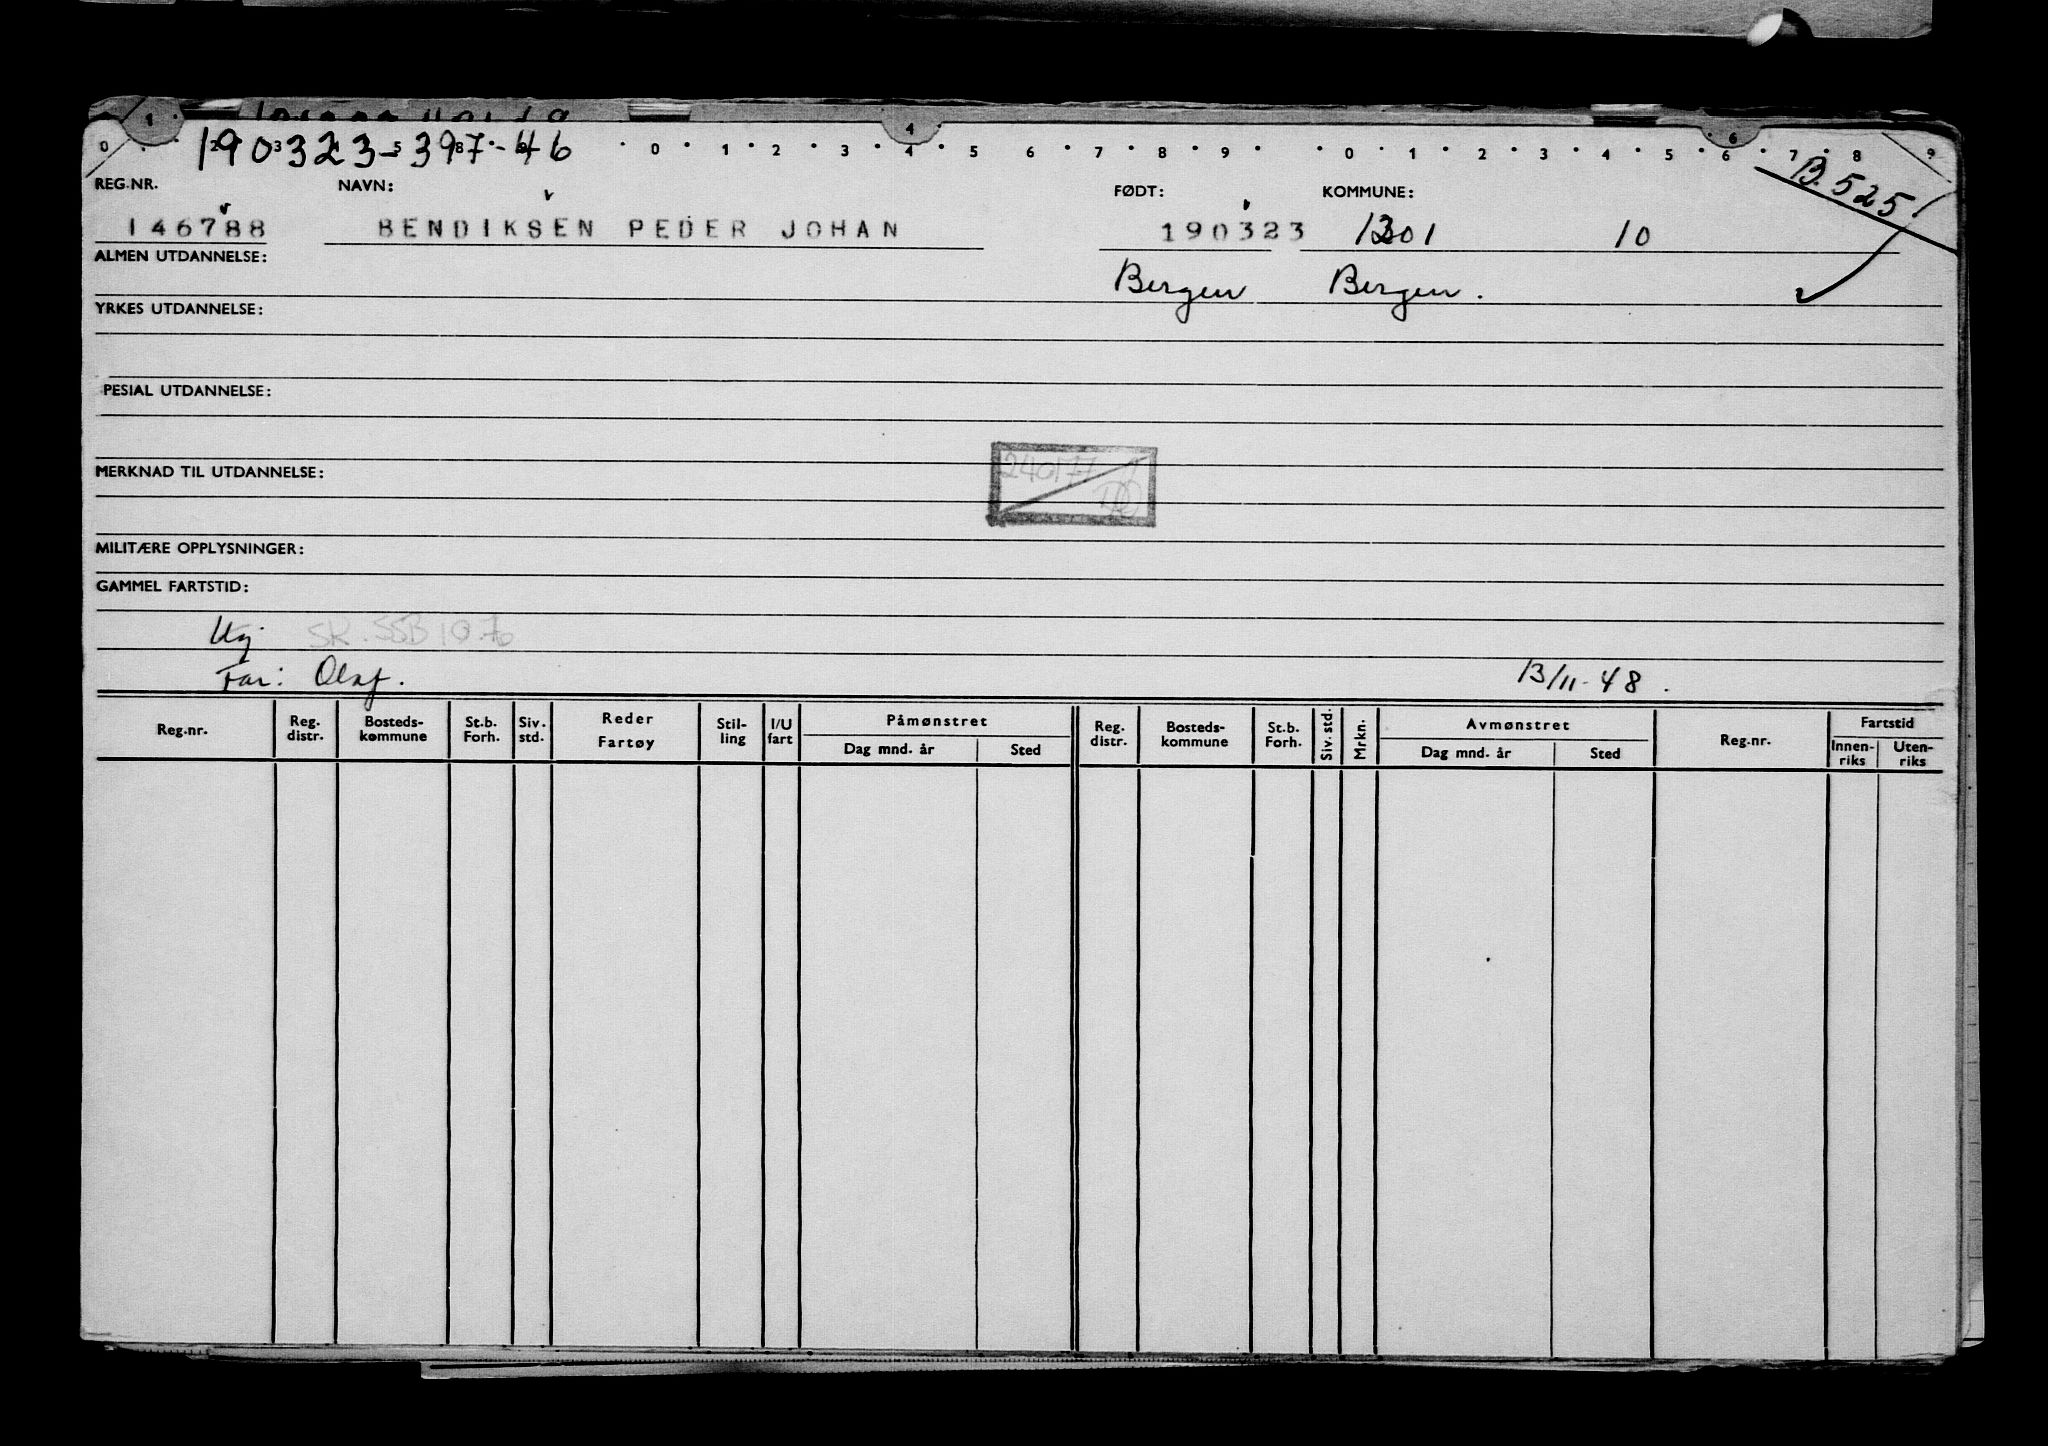 190323-397-46
0 1 2 3 4 5 6 7 8 9 0 1 2 3 4 5 6 7 8 9
B. 525
REG.NR. NAVN: FØDT: KOMMUNE:
146788 BENDIKSEN PEDER JOHAN 190323 1301 10
ALMEN UTDANNELSE: Bergen Bergen.
YRKES UTDANNELSE:
PESIAL UTDANNELSE:
240177
MERKNAD TIL UTDANNELSE:
MILITÆRE OPPLYSNINGER:
GAMMEL FARTSTID:
Ug SK. SSB 10 76
Far: Olaf. 13/11-48.
Reg.nr. Reg. distr. Bosteds-kommune St.b. Forh. Siv. std. Reder Fartøy Stil-ling I/U fart Påmønstret Dag mnd. år Sted Reg. distr. Bosteds-kommune St.b. Forh. Siv. std. Mrkn. Avmønstret Dag mnd. år Sted Reg.nr. Fartstid Innen-riks Uten-riks